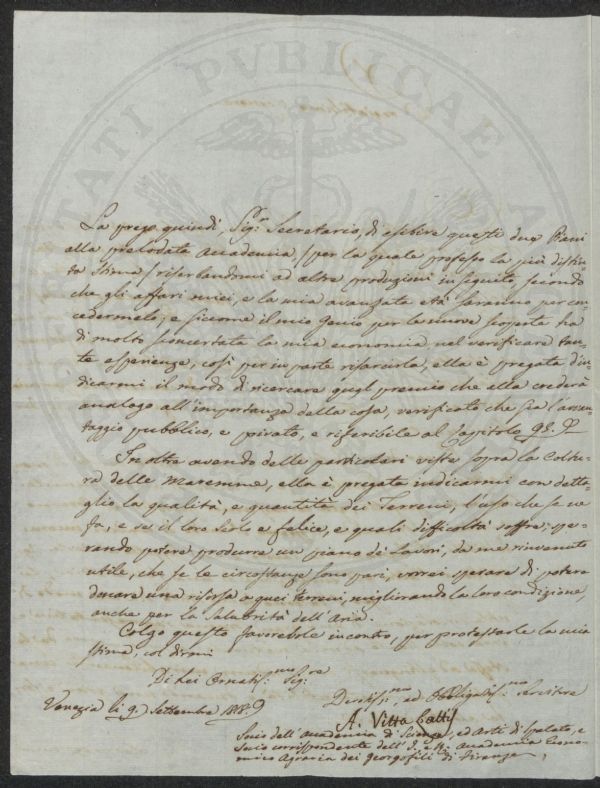 La prego quindi Sig.r Secretario, di esibire questi due Piani
alla prelodata Accademia (per la quale professo la più distin-
ta stima) riserbandomi ad altre produzioni in seguito, secondo
che gli affari miei, e la mia avanzata età saranno per con-
cedermelo; e siccome il mio Genio per le nuove scoperte ha
di molto sconcertata la mia economia nel verificare tan-
te esperienze, così per in parte risarcirla, ella è pregata d'in-
dicarmi il modo di ricercare quel premio che ella crederà
analogo all'importanza della cosa, verificato che sia l'avan-
taggio pubblico, e privato, e riferibile al Capitolo
In oltre avendo delle particolari viste sopra la Coltu-
ra delle Maremme, ella è pregata indicarmi con detta-
glio la qualità, e quantità dei Terreni, l'uso che se ne
fa, e se il loro Scolo e felice, e quali difficoltà soffre; spe-
rando potere produrre un piano dei Lavori, da me rinvenuto
utile, che se le circostanze sono pari, vorrei sperare di potere
donare una risorsa a quei terreni, migliorando la loro condizione,
anche per la Salubrità dell'Aria.
Colgo questo favorevole incontro, per protestarle la mia
stima, col dirmi
Di Lei Ornatis.mo Sig.re
Venezia li 9 Settembre 1818
Devotis.mo, ed Obbligatis.mo Servitore
A. Vitta Cattis
Socio dell'Accademia di Scienze, ed Arti di Spalato, e
Socio corrispondente dell'I. e R. Accademia Econo-
mico Agraria dei Georgofili di Firenze
PVBLICAE